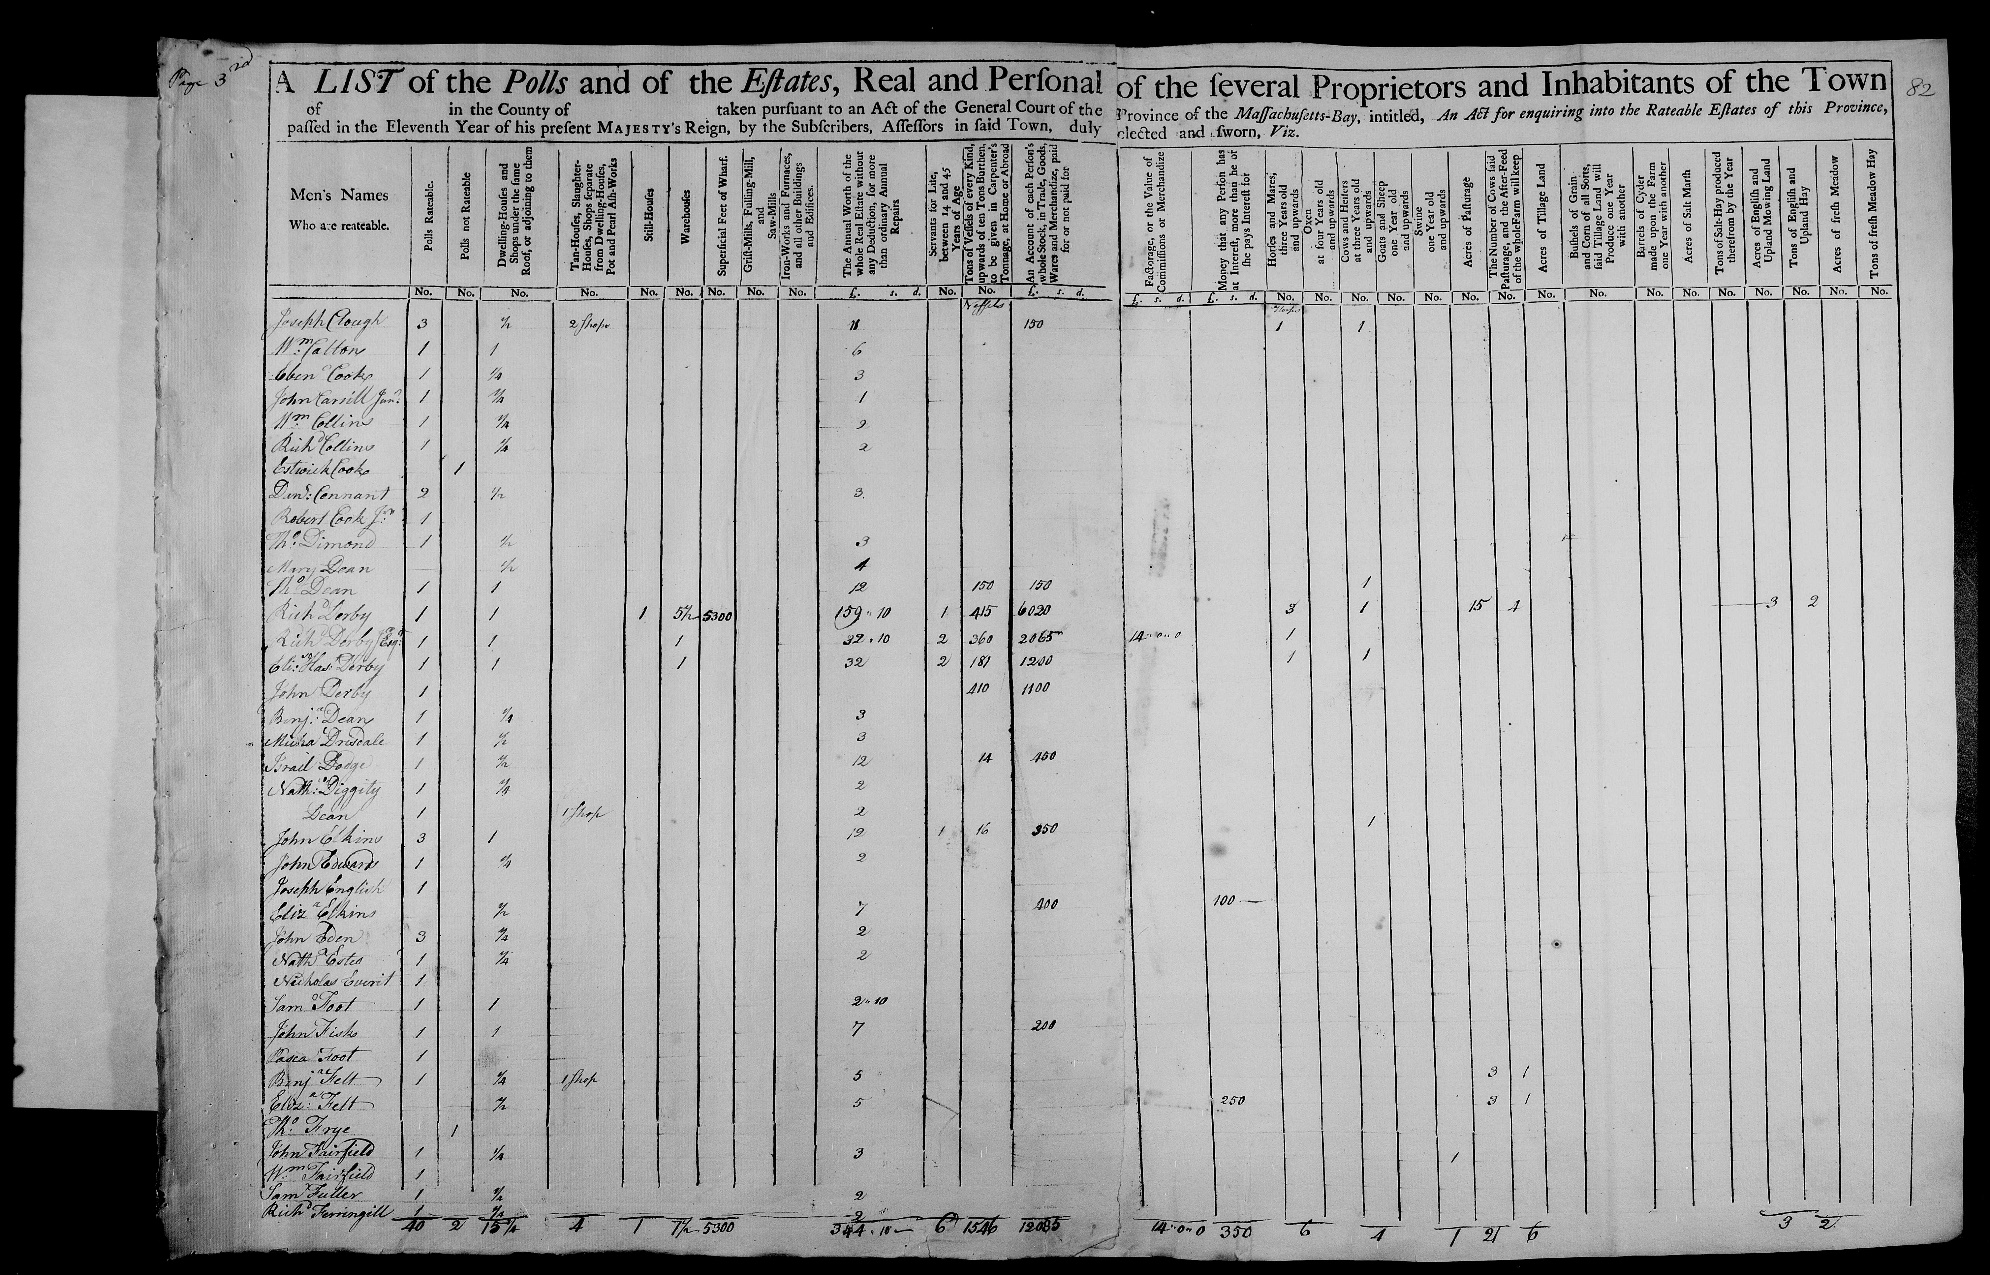 Page 3rd
82
A LIST of the Polls and of the Eſtates, Real and Perſonal of the ſeveral Proprietors and Inhabitants of the Town
of in the County of taken purſuant to an Act of the General Court of the Province of the Maſſachuſetts-Bay, intitled, An Act for enquiring into the Rateable Eſtates of this Province,
paſſed in the Eleventh Year of his preſent MAJESTY's Reign, by the Subſcribers, Aſſeſſors in ſaid Town, duly elected and ſworn, Viz.
Men's Names
Who are reateable.
Polls Rateable.
Polls not Rateable
Dwelling-Houſes and
Shops under the ſame
Roof, or adjoining to them
Tan-Houſes, Slaughter-
Houſes, Shops ſeparate
from Dwelling-Houſes,
Pot and Pearl Aſh-Works
Still-Houſes
Warehouſes
Superficial Feet of Wharf.
Griſt-Mills, Fulling-Mill,
and
Saw-Mills
Iron-Works and Furnaces,
and all other Buildings
and Edifices.
The Annual Worth of the
whole Real Eſtate without
any Deduction, for more
than ordinary Annual
Repairs
Servants for Life,
between 14 and 45
Years of Age
Tons of Veſſels of every Kind,
upwards of ten Tons Burthen,
to be given in Carpenter's
Tonnage, at Home or Abroad
An Account of each Perſon's
whole Stock, in Trade, Goods,
Wares and Merchandize, paid
for or not paid for
Factorage, or the Value of
Commiſſions or Merchandize
Money that any Perſon has
at Intereſt, more than he or
ſhe pays Intereſt for
Horſes and Mares,
three Years old
and upwards
Oxen
at four Years old
and upwards
Cows and Heifers
at three Years old
and upwards
Goats and Sheep
one Year old
and upwards
Swine
one Year old
and upwards
Acres of Paſturage
The Number of Cows ſaid
Paſturage, and the After-Feed
of the whole Farm will keep
Acres of Tillage Land
Buſhels of Grain
and Corn of all Sorts,
ſaid Tillage Land will
Produce one Year
with another
Barrels of Cyder
made upon the Farm
one Year with another
Acres of Salt Marſh
Tons of Salt-Hay produced
therefrom by the Year
Acres of Engliſh and
Upland Mowing Land
Tons of Engliſh and
Upland Hay
Acres of freſh Meadow
Tons of freſh Meadow Hay
No. No. No. No. No. No. No. No. No. £. s. d. No. No. £. s. d. £. s. d. £. s. d. No. No. No. No. No. No. No. No. No. No. No. No. No. No. No. No.
Joseph Clough 3 1/2 2 Shops 11 150 1 1
Wm Catton 1 1 6
Eben Cooke 1 1/4 3
John Carsill Junr 1 3/4 1
Wm Collins 1 1/4 2
Richd Collins 1 1/4 2
Estwick Cook 1
Danl: Connant 2 1/2 3
Robert Cook Jnr 1
Tho Dimond 1 1/2 3
Mary Dean 1/2 4
Tho Dean 1 1 12 150 150 1
Richd Derby 1 1 1 5 1/2 5300 159 " 10 1 415 6020 3 1 15 4 3 2
Richd Derby Esqr 1 1 1 32 " 10 2 360 2065 14 " 0 " 0 1
Eli: Has: Derby 1 1 1 32 2 181 1200 1 1
John Derby 1 410 1100
Benja Dean 1 1/4 3
Micha Drisdale 1 1/2 3
Israel Dodge 1 1/2 12 14 450
Nath: Diggity 1 1/4 2
Dean 1 1 Shop 2
John Elkins 3 1 12 1 16 350 1
John Edwards 1 1/4 2
Joseph English 1
Eliza Elkins 1/2 7 400 100
John Eden 3 1/4 2
Nath Estes 1 1/4 2
Nicholas Everit 1
Sam Foot 1 1 2 " 10
John Fisk 1 1 7 200
Pasca Foot 1
Benja Felt 1 1/4 1 Shop 5 3 1
Eliz:a Felt 1/2 5 250 3 1
Tho Frye 1
John Fairfield 1 1/4 3 1
Wm Fairfield 1
Sam Fuller 1 1/4 2
Richd Ferringill 1 1/4 2
40 2 15 1/4 4 1 7 1/2 5300 344 " 10 6 1546 12085 14 " 0 " 0 350 6 4 1 21 6 3 2